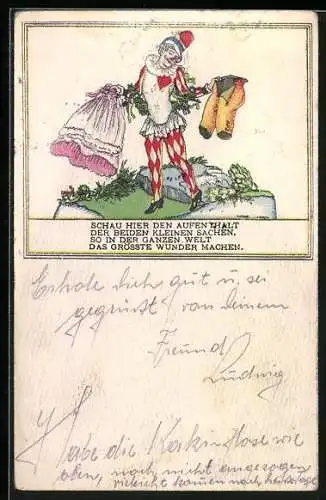 SCHAU HIER DEN AUFENTHALT
DER BEIDEN KLEINEN SACHEN,
SO IN DER GANZEN WELT
DAS GRÖSSTE WUNDER MACHEN.
Erhole dich gut u. sei
gegrüsst von Deinem
Freund
Ludwig
Habe die Hose wie
oben, noch nicht angezogen
vieleicht kommen noch